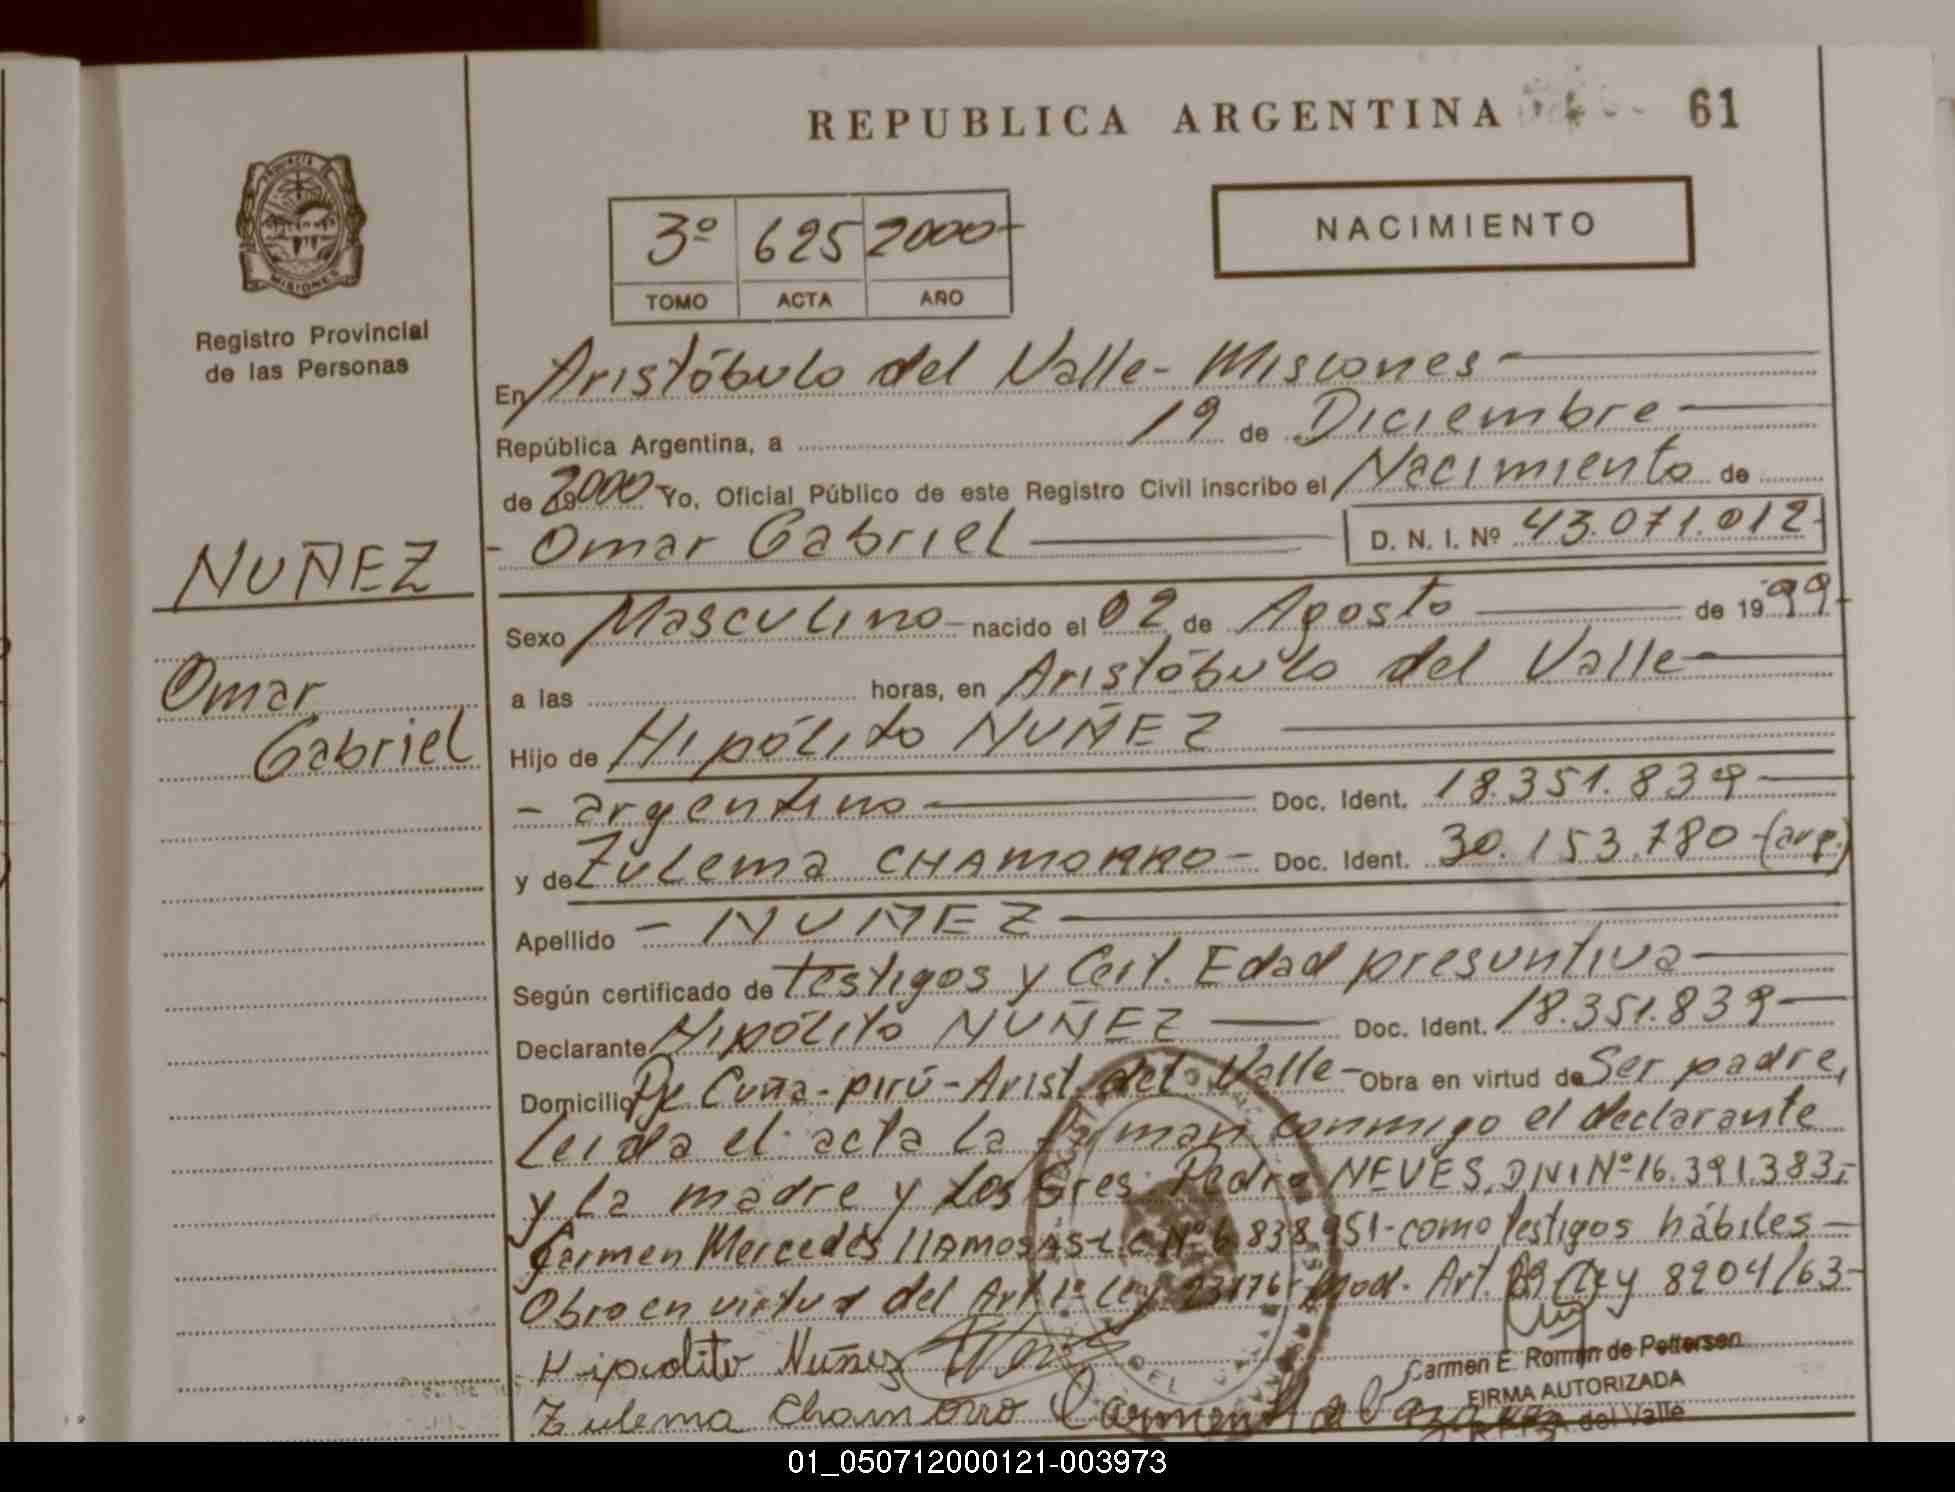 REPUBLICA ARGENTINA 61
PROVINCIA DE
MISIONES
Registro Provincial
de las Personas
3º 625 2000-
TOMO ACTA AÑO
NACIMIENTO
En Aristóbulo del Valle - Misiones -
República Argentina, a 19 de Diciembre -
de 2000 Yo, Oficial Público de este Registro Civil inscribo el Nacimiento de
- Omar Gabriel D. N. I. Nº 43.071.012-
NUÑEZ
Omar
Gabriel
Sexo Masculino - nacido el 02 de Agosto de 1999-
a las horas, en Aristóbulo del Valle -
Hijo de Hipólito NUÑEZ
- argentino - Doc. Ident. 18.351.839 -
y de Zulema CHAMORRO - Doc. Ident. 30.153.780 - (arg.)
Apellido - NUÑEZ -
Según certificado de testigos y Cert. Edad presuntiva -
Declarante Hipólito NUÑEZ - Doc. Ident. 18.351.839 -
Domicilio Pje Cuña-pirú - Arist. del Valle - Obra en virtud de Ser padre,
Leída el acta la firman conmigo el declarante
y la madre y los Sres. Pedro NEVES, DNI Nº 16.391.383,-
Carmen Mercedes LC Nº 6.838.951 - como testigos hábiles -
Obra en virtud del Art. 1º Ley 23176 - Mod. Art. Ley 8204/63 -
Hipolito Nuñez
Zulema Chamorro Carmen
Carmen E. Román de Pettersen
FIRMA AUTORIZADA
del Valle
01_050712000121-003973